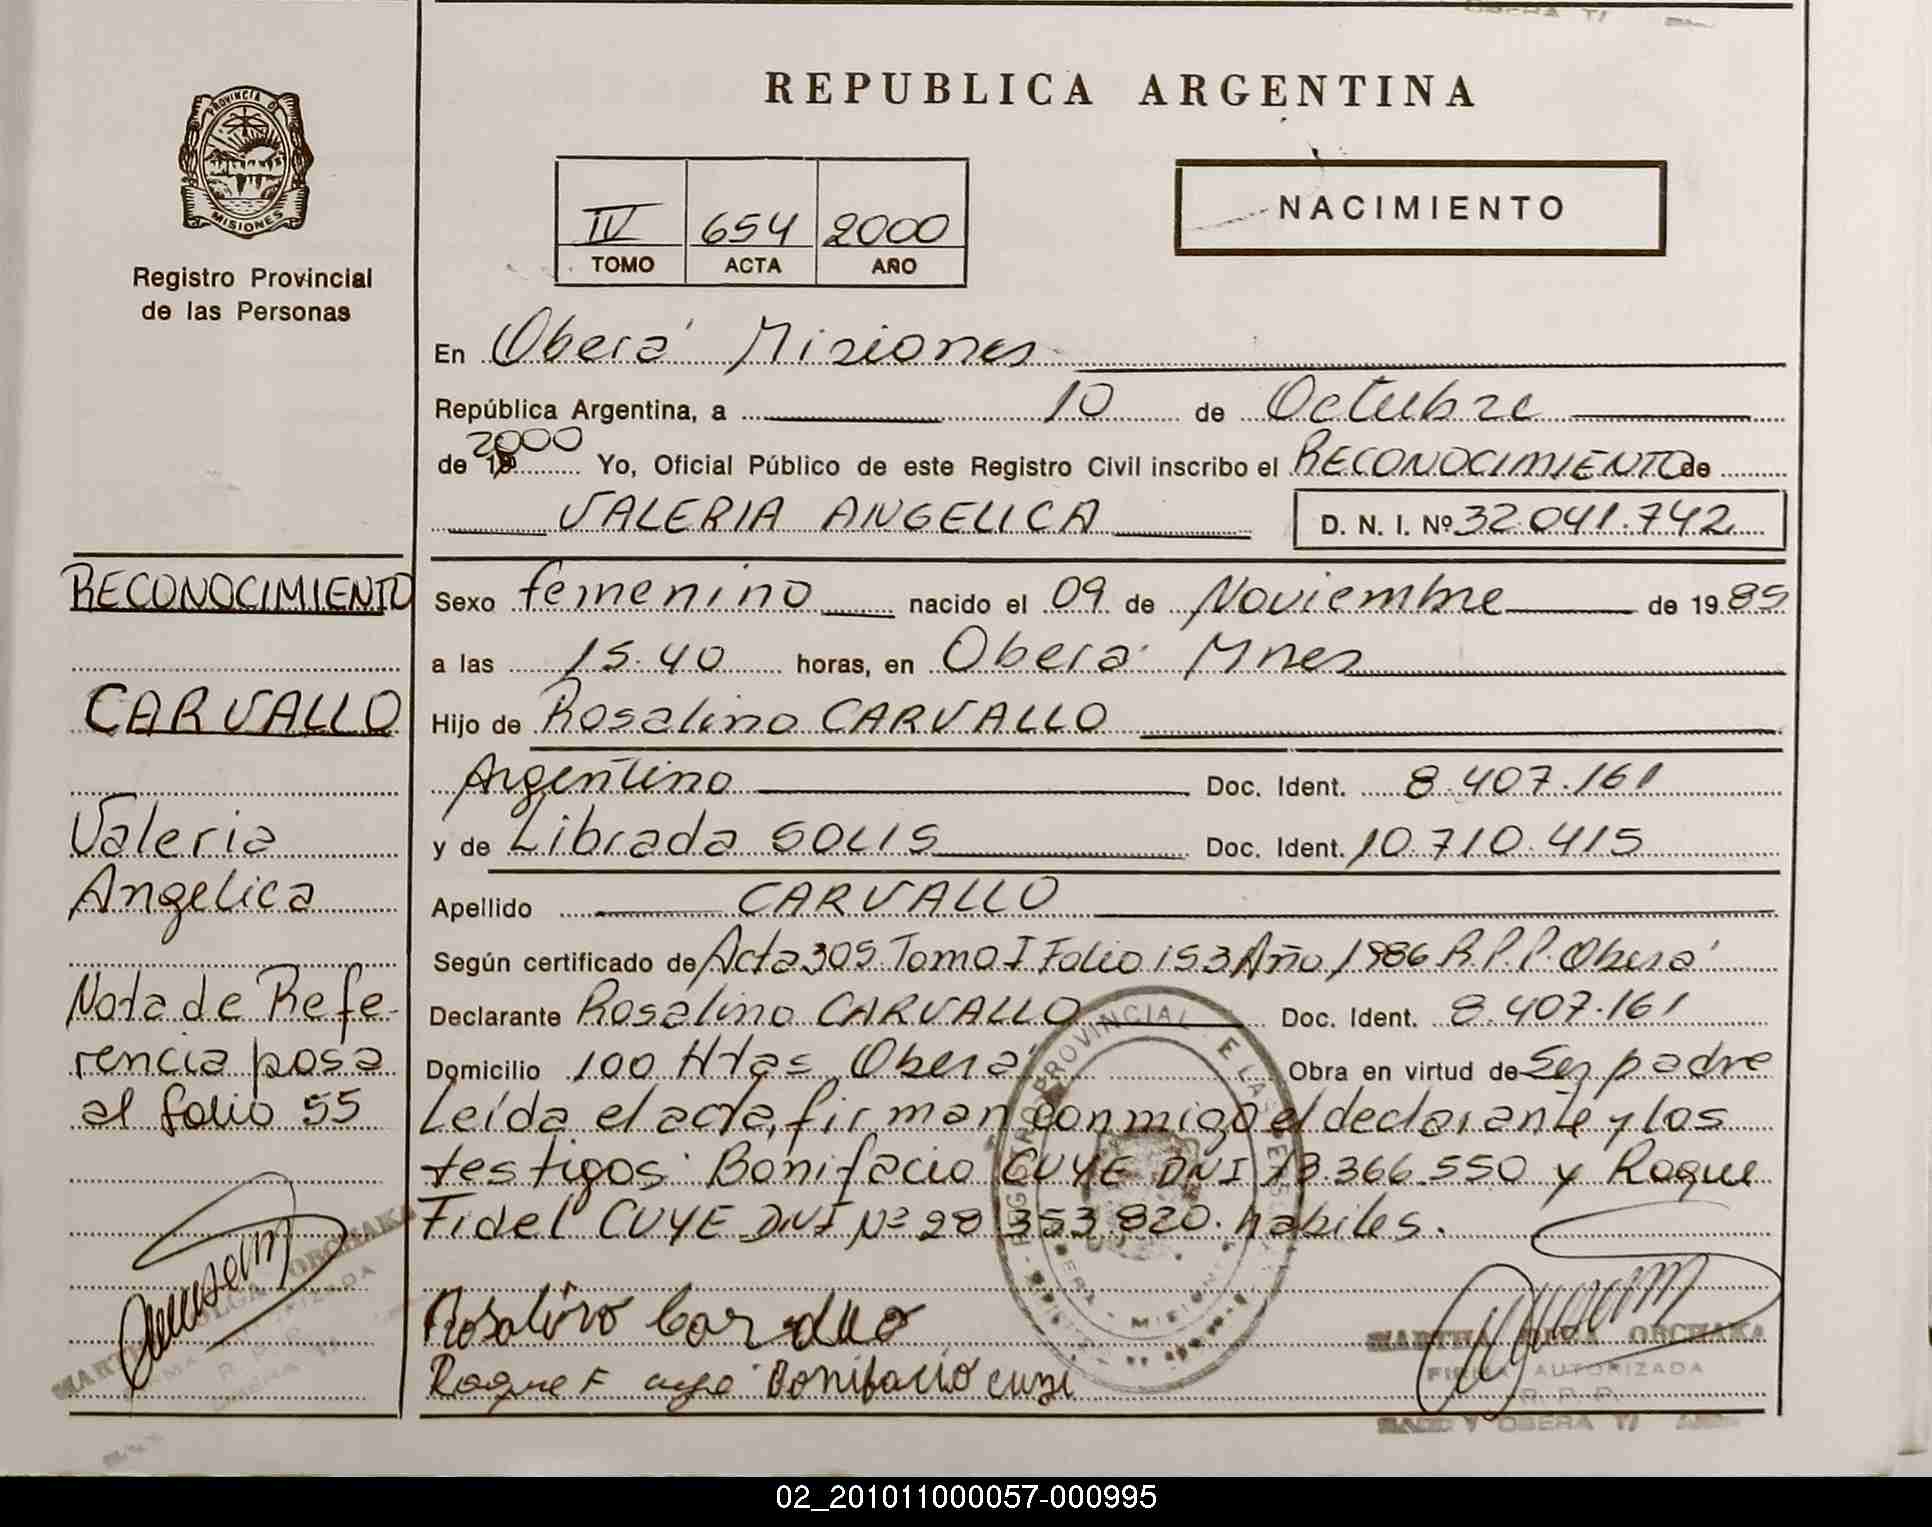 REPUBLICA ARGENTINA
PROVINCIA D
MISIONES
Registro Provincial
de las Personas
IV 654 2000
TOMO ACTA AÑO
NACIMIENTO
En Oberá Misiones
República Argentina, a 10 de Octubre
de 2000 Yo, Oficial Público de este Registro Civil inscribo el RECONOCIMIENTO de
VALERIA ANGELICA D. N. I. Nº 32.041.742
Sexo femenino nacido el 09 de Noviembre de 1985
a las 15.40 horas, en Oberá Mnes
Hijo de Rosalino CARVALLO
Argentino Doc. Ident. 8.407.161
y de Librada SOLIS Doc. Ident. 10.710.415
Apellido CARVALLO
Según certificado de Acta 305 Tomo I Folio 153 Año 1986 R.P.P. Oberá
Declarante Rosalino CARVALLO Doc. Ident. 8.407.161
Domicilio 100 Htas Oberá Obra en virtud de Ser padre
Leída el acta, firman conmigo el declarante y los
testigos: Bonifacio CUYE DNI 13.366.550 y Roque
Fidel CUYE DNI Nº 28.353.820. habiles.
Rosalino Carvallo
Roque F cuye Bonifacio cuye
MARTHA OLGA ORCHAKA
FIRMA AUTORIZADA
R. P. P.
RECONOCIMIENTO
CARVALLO
Valeria
Angelica
Nota de Refe-
rencia pasa
al folio 55
OLGA ORCHAKA
02_201011000057-000995